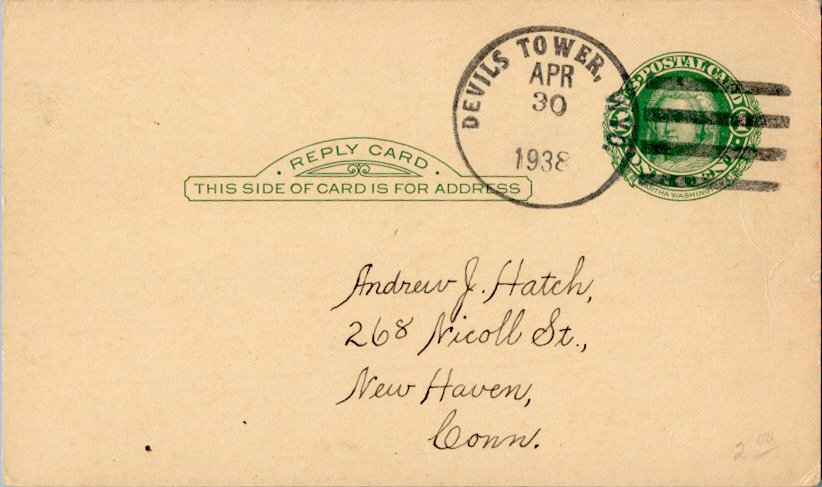 DEVILS TOWER, WYO.
APR
30
1938
U·S·POSTAL CARD
ONE CENT
MARTHA WASHINGTON
· REPLY CARD ·
THIS SIDE OF CARD IS FOR ADDRESS
Andrew J. Hatch,
268 Nicoll St.,
New Haven,
Conn.
2.00